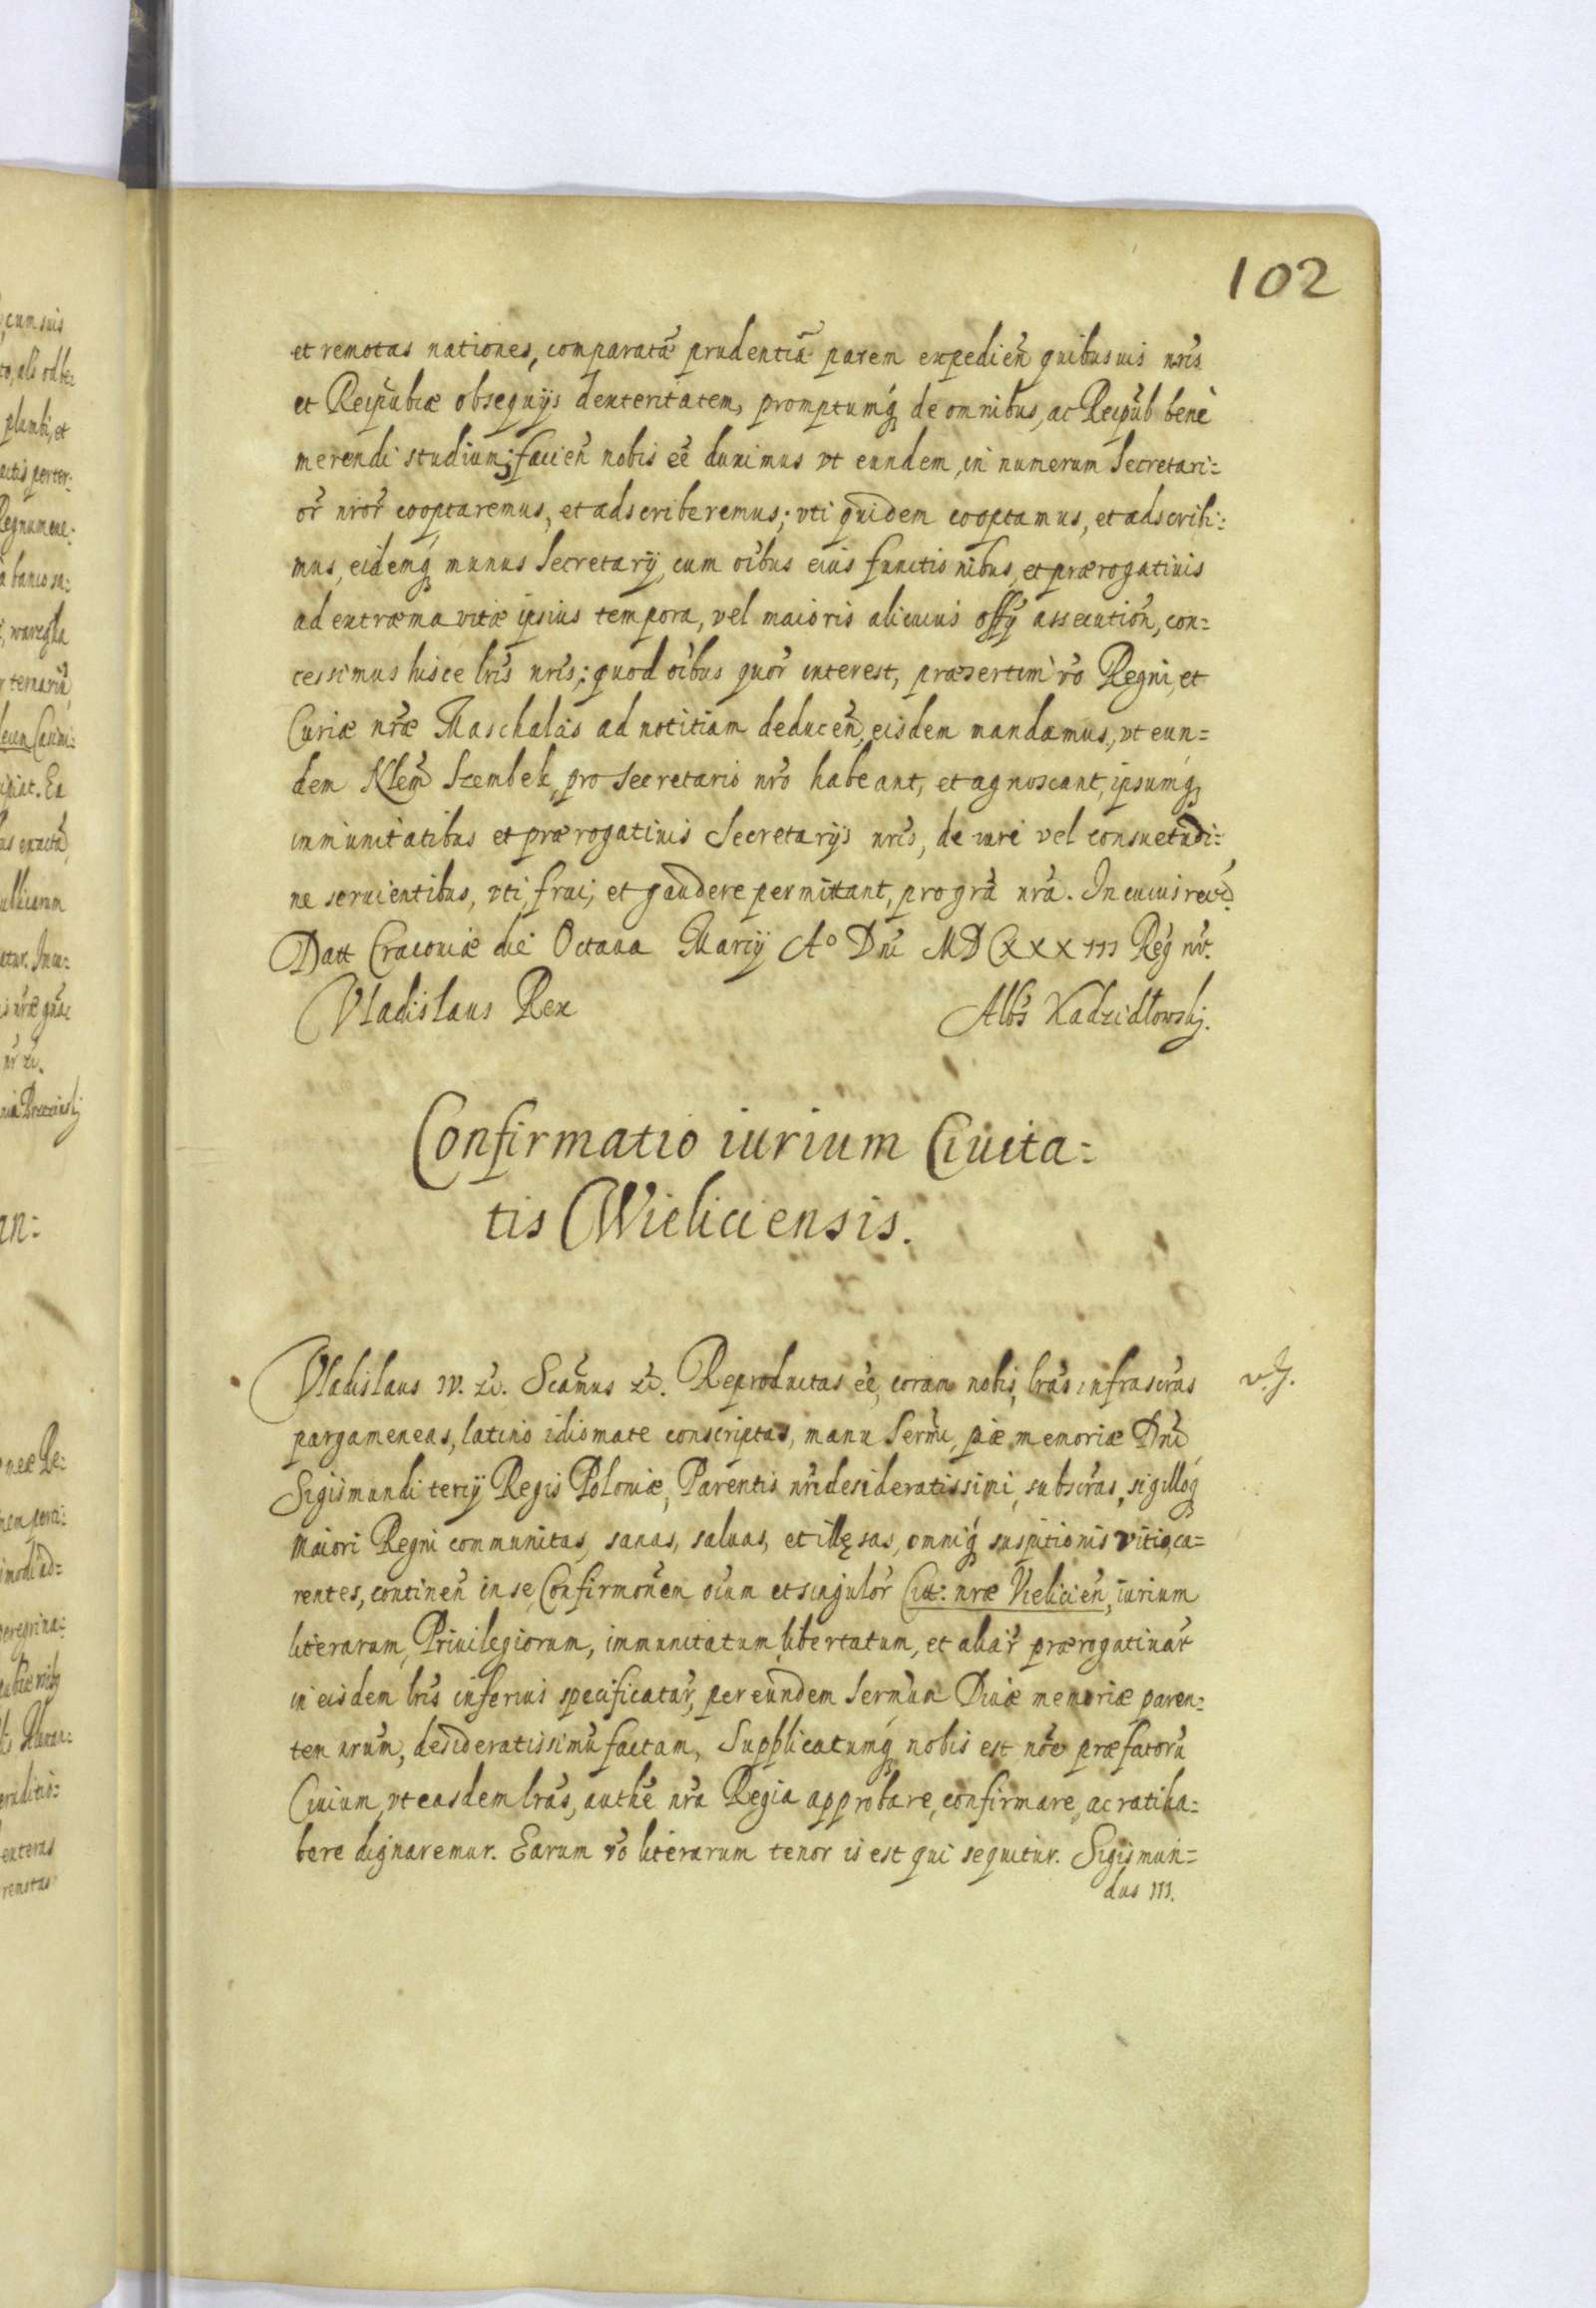 102
et remotas nationes, comparatã prudentiã parem expedień quibusuis nrĩs
et Reipublicæ obsequijs dexteritatem, promptumq́ de omnibus, ac Reipub̃ benè
merendi studium; facień nobis eẽ duximus vt eundem, in numerum Secretari=
or̃ nror̃ cooptaremus, et adscriberemus; vti quidem cooptamus, et adscribi=
mus, eidemq́ munus Secretarij, cum oĩbus eius functionibus, et prærogatiuis
ad extræma vitæ ipsius tempora, vel maioris alicuius offỹ assecutioñ, con=
cessimus hisce lrĩs nrĩs; quod oĩbus quor̃ interest, præsertim vº Regni, et
Curiæ nrãe Maschalcis ad notitiam deduceñ, eisdem mandamus, vt eun=
dem Szembek, pro Secretario nrõ habeant, et agnoscant, ipsumq́
immunitatibus et prærogatiuis Secretarijs nrĩs, de iure vel consuetudi=
ne seruientibus, vti, frui, et gaudere permittant, pro grã nrã. In cuius rei
Datt Cracouiæ die Octaua Marcij Aº Dnĩ MDCXXXIII Reg̃ nrĩ.
Vladislaus Rex
Albs̃ Kadzidłowskj.
Confirmatio iurium Ciuita=
tis Wieliciensis.
Vladislaus IV. &c. Scam̃us &c. Reproductas eẽ, coram nobis, lrãs infrascrãs
pargameneas, latino idiomate conscriptas, manu Serm̃i, piæ memoriæ Dnĩ
Sigismundi tertij Regis Poloniæ, Parentis nrĩ desideratissimi, subscrãs, sigilloq́
maiori Regni communitas, sanas, saluas, et illęsas, omniq́ suspitionis vitio, ca=
rentes, continen̄ in se Confirmoñem oĩum et singulor̃ Ciut: nræ Vielicień, iurium
literarum, Priuilegiorum, immunitatum, libertatum, et aliar̃ prærogatiuar̃
in eisdem lrĩs inferius specificatar̃, per eundem Serm̃um Diuæ memoriæ paren=
tem nrũm, desideratissimũ factam, Supplicatumq́ nobis est noẽ præfatorũ
Ciuium, vt easdem lrãs, authẽ nrã Regia approbare, confirmare, ac ratiha=
bere dignaremur. Earum vº literarum tenor is est qui sequitur. Sigismun=
dus III.